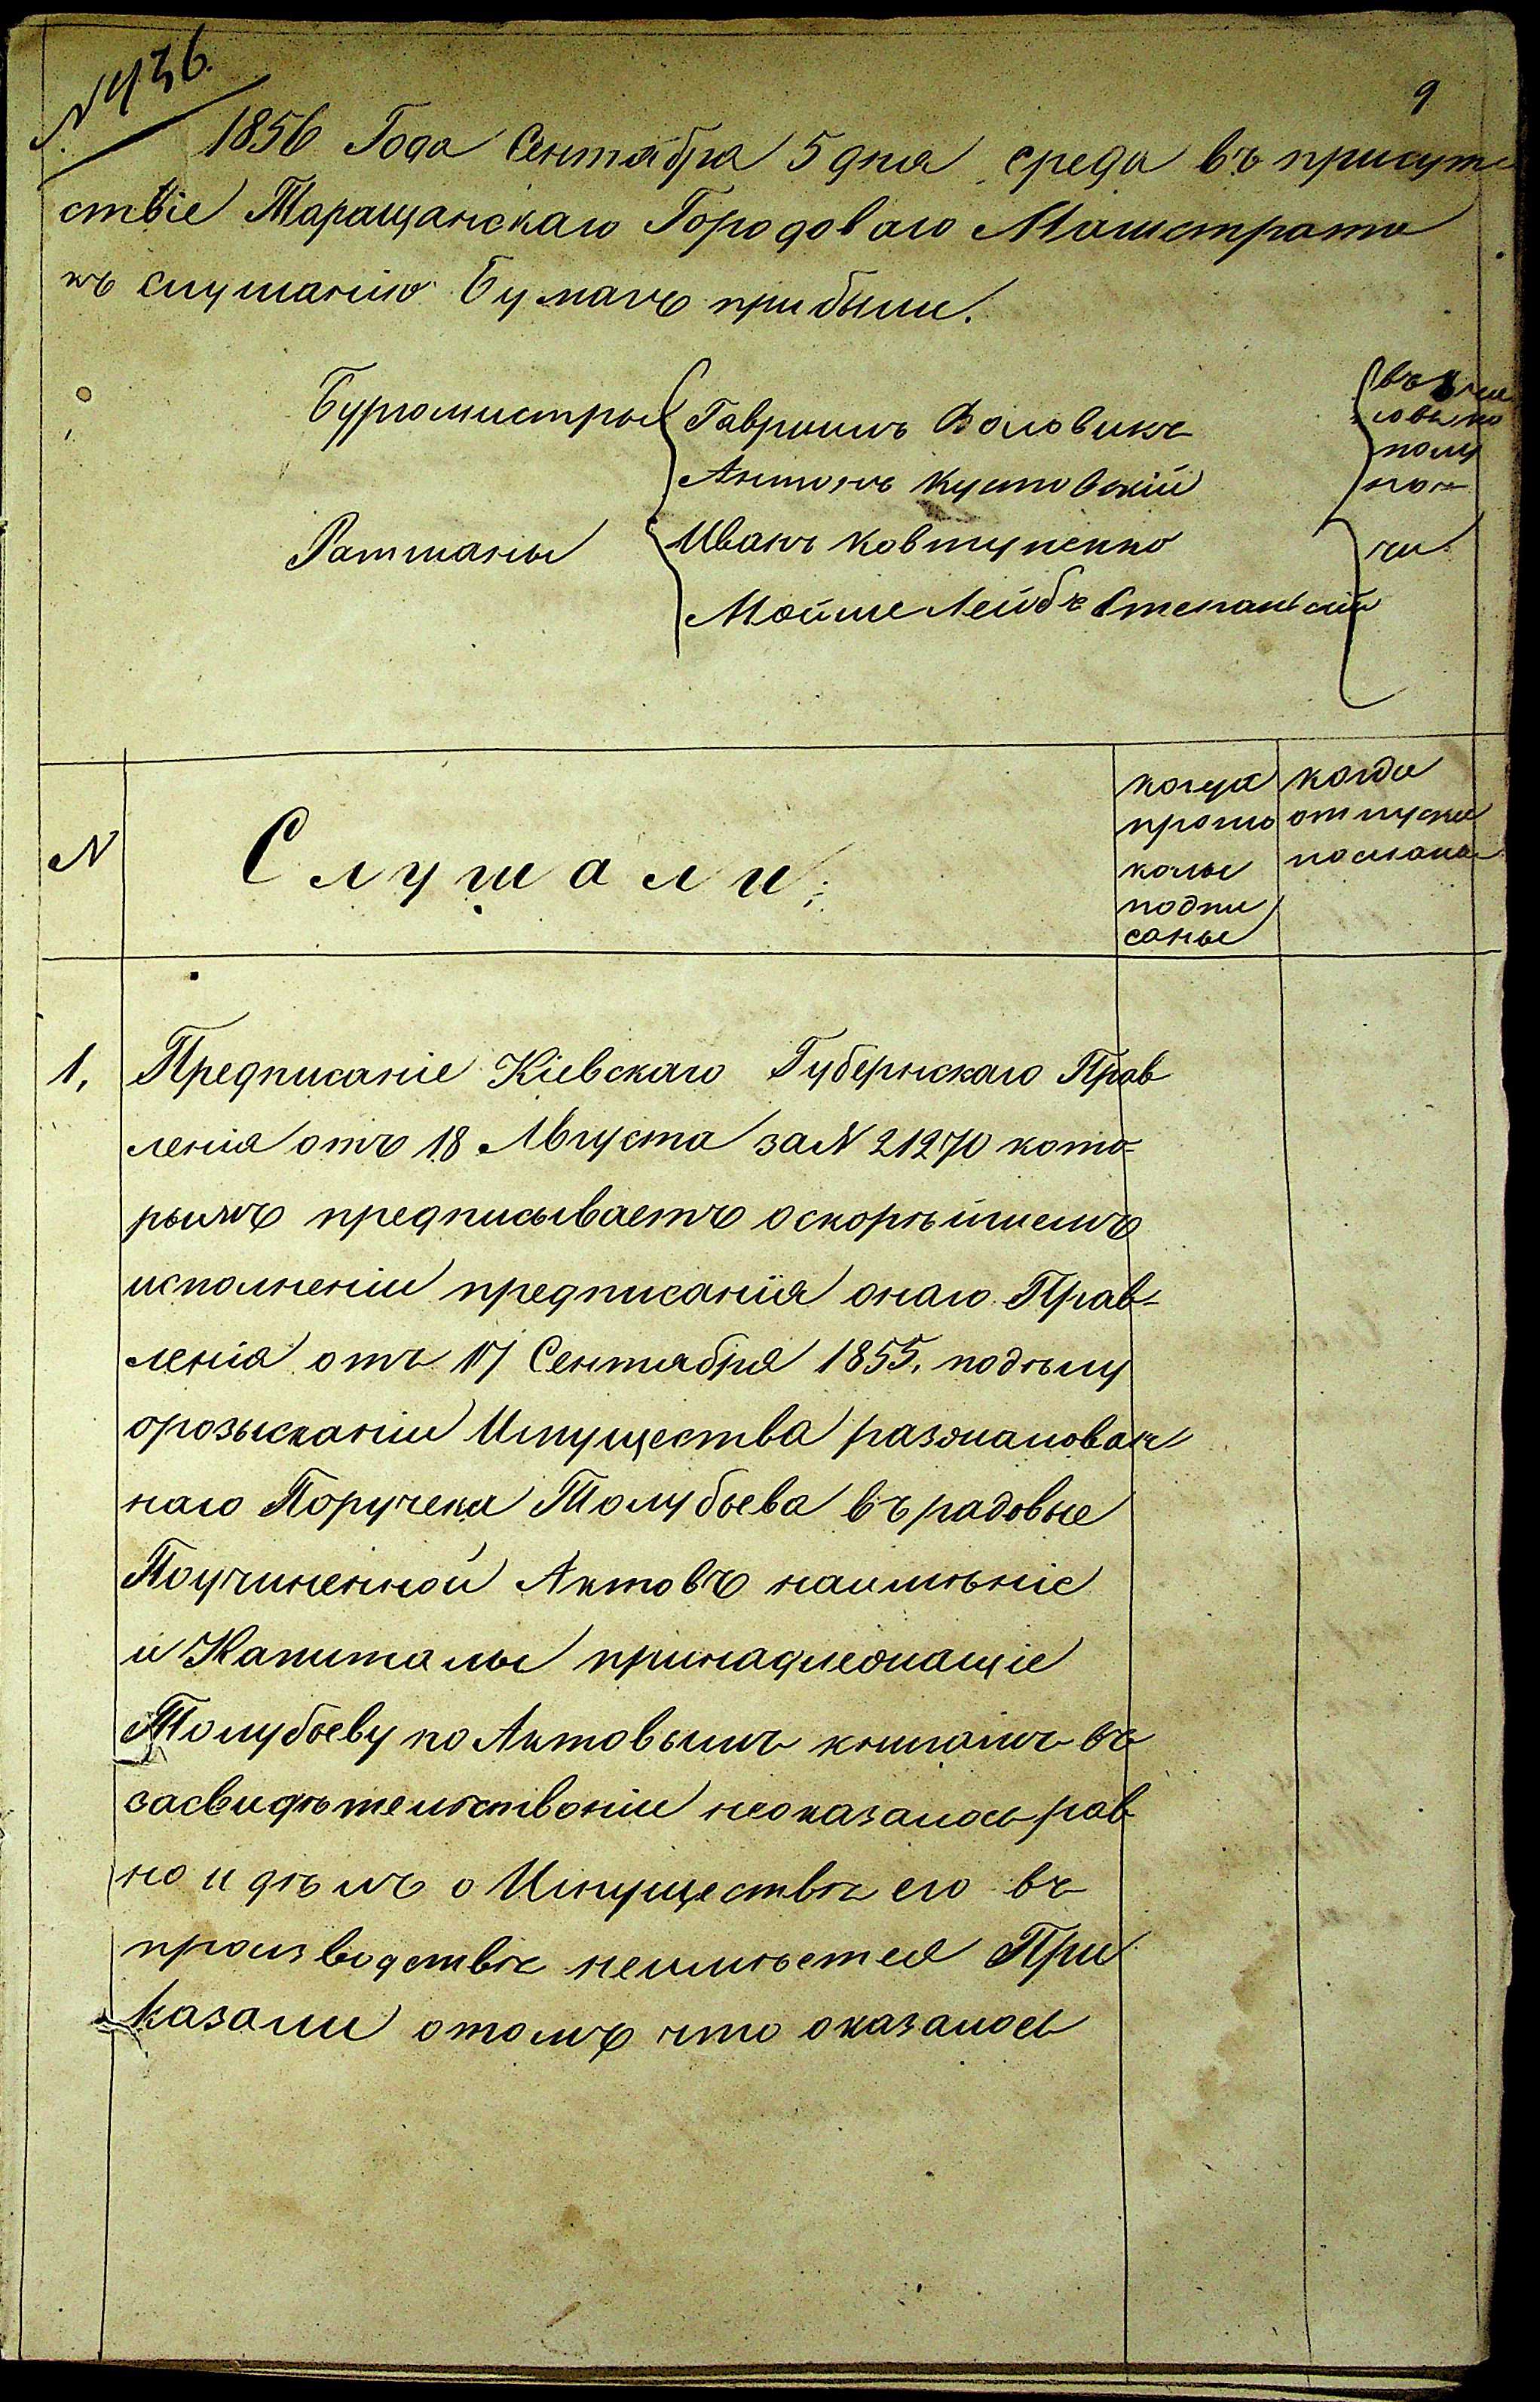 N 436.
9
1856 Года Сентября 5 дня среда въ присут
ствіе Таращанскаго Городоваго Магистрата
къ слушанію бумагъ прибыли.
Бургомистры Гавриилъ Воловикъ
Антонъ Кустовскій
Ратманы Иванъ Ковтуненко
Мойше Лейбъ Степанскій
полу
ночи
N
Слушали:
когда
прото
колы
подпи
саны
когда
отпуски
посланы
1, Предписаніе Кіевскаго Губернскаго Прав
ленія отъ 18 Августа за N 21270 кото-
рымъ предписываетъ оскорѣйшемъ
исполненіи предписанія онаго Прав-
ленія отъ 17 Сентября 1855, подѣлу
орозысканіи Имущества разжалован
наго Поручека Толубьева въ радовые
Поучиненной Актовъ наимѣніе
и Капиталы принадлежащіе
Толубьеву по Актовымъ книгамъ въ
засвидѣтельствованіи неоказалось рав
но и дѣлъ о Имуществѣ его въ
производствѣ неимѣется При
казали отомъ что оказалось